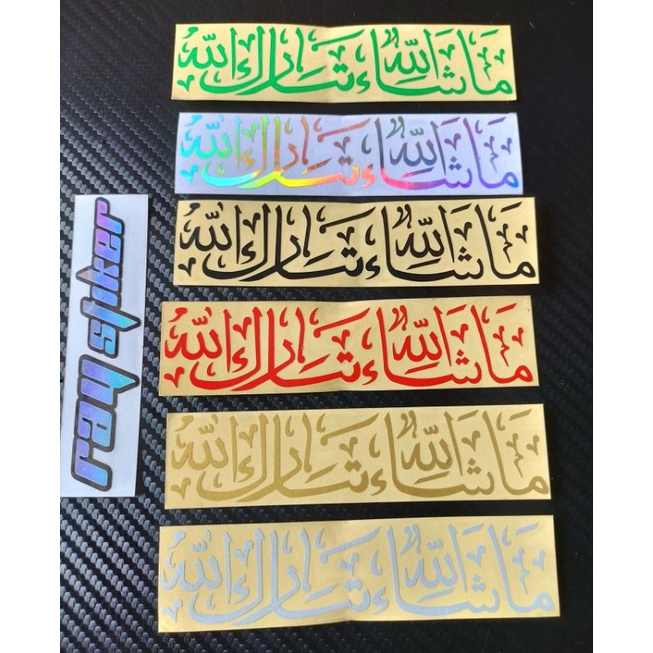 ما شاء الله تبارك الله
ما شاء الله تبارك الله
ما شاء الله تبارك الله
ما شاء الله تبارك الله
ما شاء الله تبارك الله
ما شاء الله تبارك الله
ray stiker